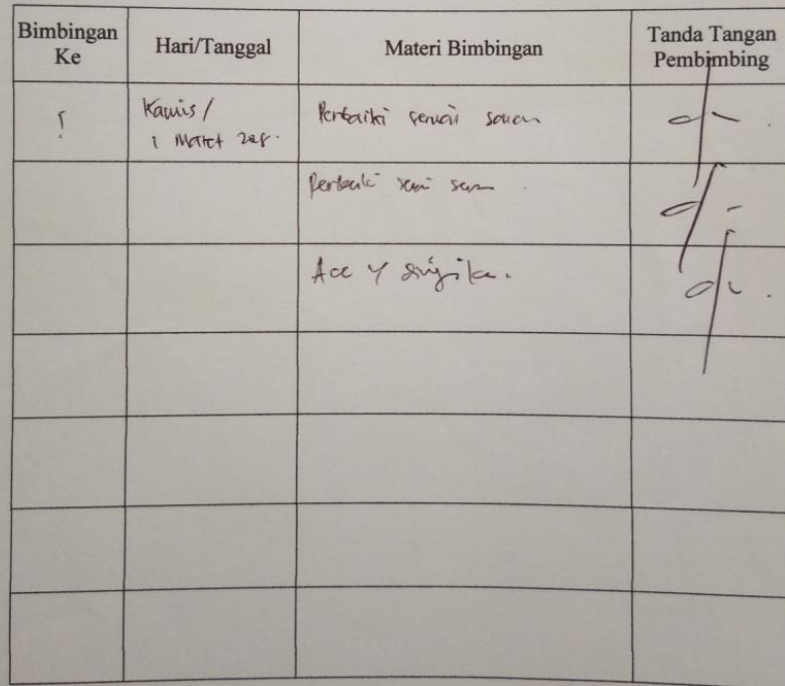 Bimbingan Ke
Hari/Tanggal
Materi Bimbingan
Tanda Tangan Pembimbing
Kamis /
1 Maret
Perbaiki sesuai saran
Perbaiki sesuai saran
Acc